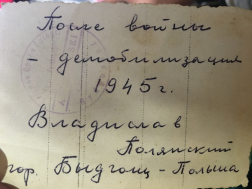 После войны
- демобилизация
1945 г.
Владислав
Полянский
гор. Быдгощ - Польша